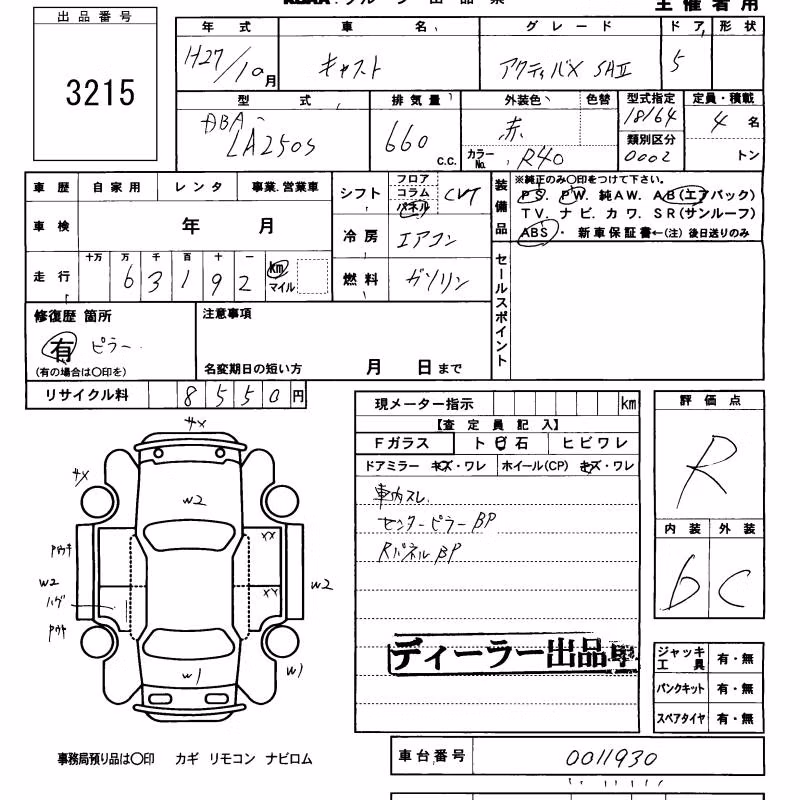 出品番号
3215
主催者用
年式 車名 グレード ドア 形状
H27/10月 キャスト アクティバX SAⅡ 5
型式 排気量 外装色 色替 型式指定 定員・積載
DBA- LA250S 660 c.c. 赤 18164 4名
カラーNo. R40 類別区分 0002 トン
車歴 自家用 レンタ 事業.営業車
車検 年 月
走行 十万 万 千 百 十 一
63192 km マイル
シフト フロア コラム パネル CVT
冷房 エアコン
燃料 ガソリン
装備品 ※純正のみ〇印をつけて下さい。
PS. PW. 純AW. AB(エアバック)
TV. ナビ. カワ. SR(サンルーフ)
ABS ・ 新車保証書←(注) 後日送りのみ
セールスポイント
修復歴 箇所
有 ピラー
(有の場合は〇印を)
注意事項
名変期日の短い方 月 日まで
リサイクル料 8550円
現メーター指示 km
【査定員記入】
Fガラス ト ビ 石 ヒビワレ
ドアミラー キズ・ワレ ホイール(CP) キズ・ワレ
車内スレ
センターピラーBP
RパネルBP
ディーラー出品車
評価点
R
内装 外装
b C
ジャッキ工具 有・無
パンクキット 有・無
スペアタイヤ 有・無
4X
4X
W2
XX
XX
W2
W2
W1
W1
事務局預り品は〇印 カギ リモコン ナビロム
車台番号 0011930